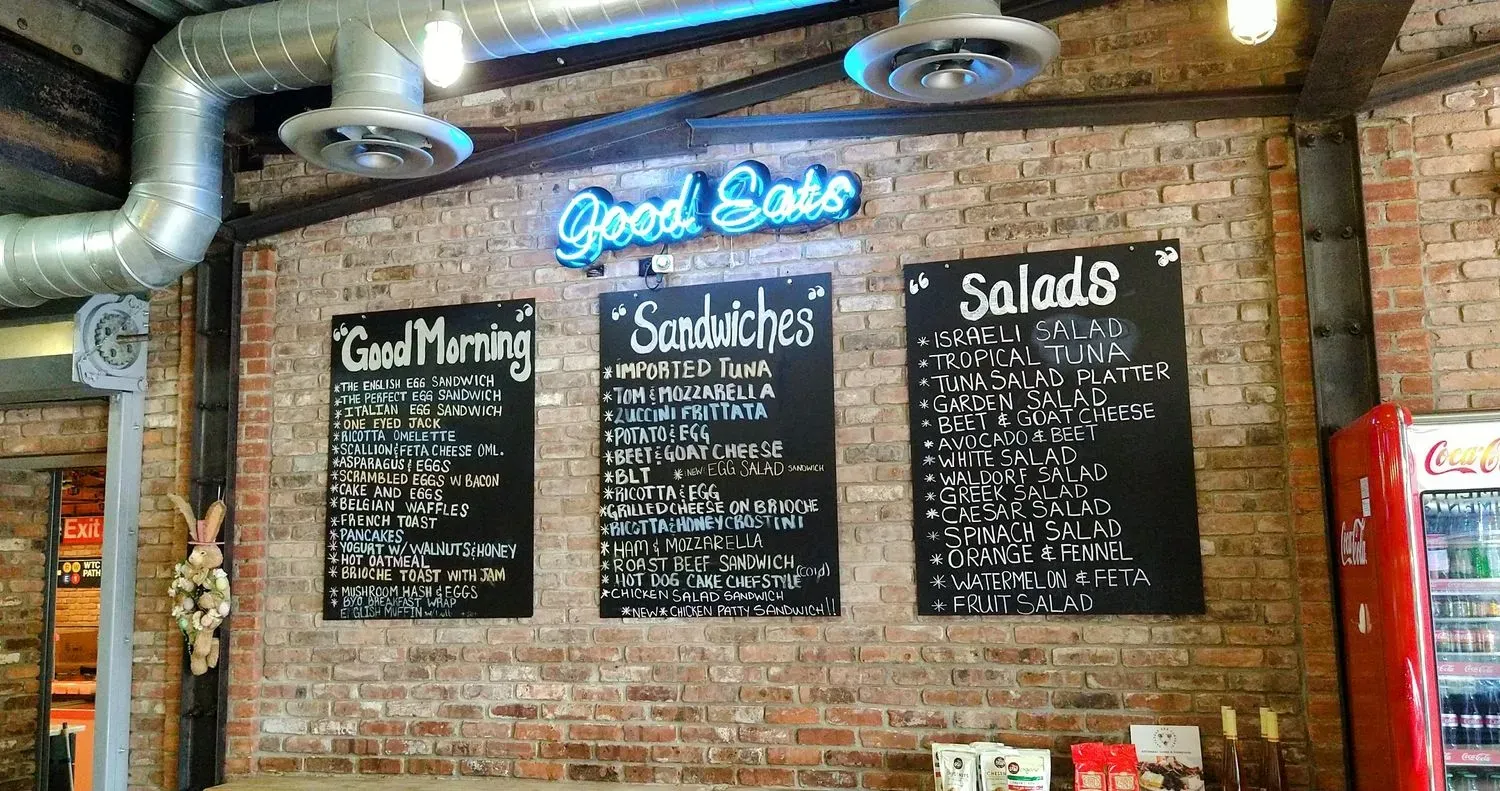 Good Eats
“Good Morning”
*THE ENGLISH EGG SANDWICH
*THE PERFECT EGG SANDWICH
*ITALIAN EGG SANDWICH
*ONE EYED JACK
*RICOTTA OMELETTE
*SCALLION & FETA CHEESE OML.
*ASPARAGUS & EGGS
*SCRAMBLED EGGS W BACON
*CAKE AND EGGS
*BELGIAN WAFFLES
*FRENCH TOAST
*PANCAKES
*YOGURT W/ WALNUTS & HONEY
*HOT OATMEAL
*BRIOCHE TOAST WITH JAM
*MUSHROOM HASH & EGGS
*BYO BREAKFAST WRAP
ENGLISH MUFFIN
“Sandwiches”
*IMPORTED TUNA
*TOM & MOZZARELLA
*ZUCCINI FRITTATA
*POTATO & EGG
*BEET & GOAT CHEESE
*BLT *(NEW) EGG SALAD SANDWICH
*RICOTTA & EGG
*GRILLED CHEESE ON BRIOCHE
*RICOTTA & HONEY CROSTINI
*HAM & MOZZARELLA
*ROAST BEEF SANDWICH (COLD)
*HOT DOG CAKE CHEFSTYLE
*CHICKEN SALAD SANDWICH
*NEW* CHICKEN PATTY SANDWICH!!
“Salads”
*ISRAELI SALAD
*TROPICAL TUNA
*TUNA SALAD PLATTER
*GARDEN SALAD
*BEET & GOAT CHEESE
*AVOCADO & BEET
*WHITE SALAD
*WALDORF SALAD
*GREEK SALAD
*CAESAR SALAD
*SPINACH SALAD
*ORANGE & FENNEL
*WATERMELON & FETA
*FRUIT SALAD
Exit
WTC
E 1 PATH
Coca-Cola
Coca-Cola
Coca-Cola